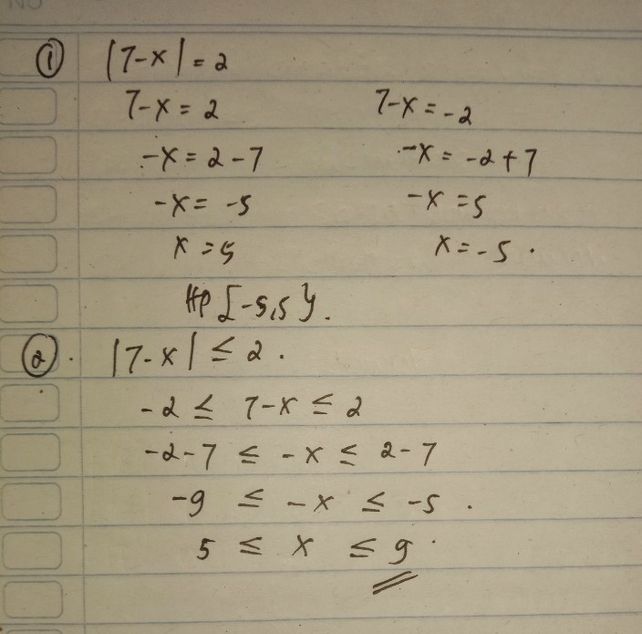 NO
① |7-x| = 2
7-x = 2 7-x = -2
-x = 2-7 -x = -2+7
-x = -5 -x = 5
x = 5 x = -5.
HP {-5,5}.
②. |7-x| ≤ 2.
-2 ≤ 7-x ≤ 2
-2-7 ≤ -x ≤ 2-7
-9 ≤ -x ≤ -5.
5 ≤ x ≤ 9.